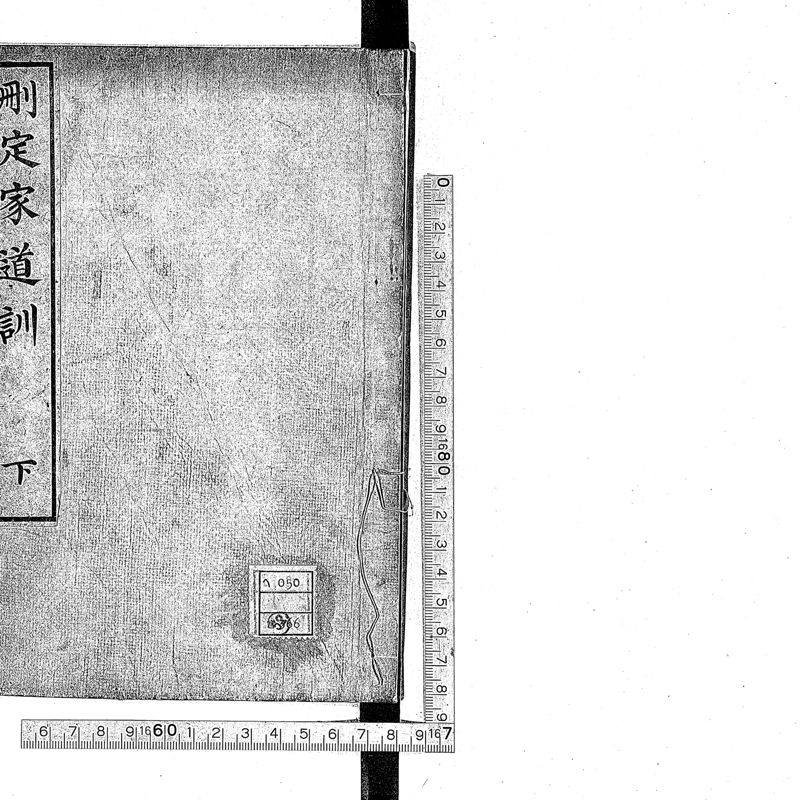 刪定家道訓 下
050
0 1 2 3 4 5 6 7 8 9 1680 1 2 3 4 5 6 7 8 9
6 7 8 9 1660 1 2 3 4 5 6 7 8 9 167